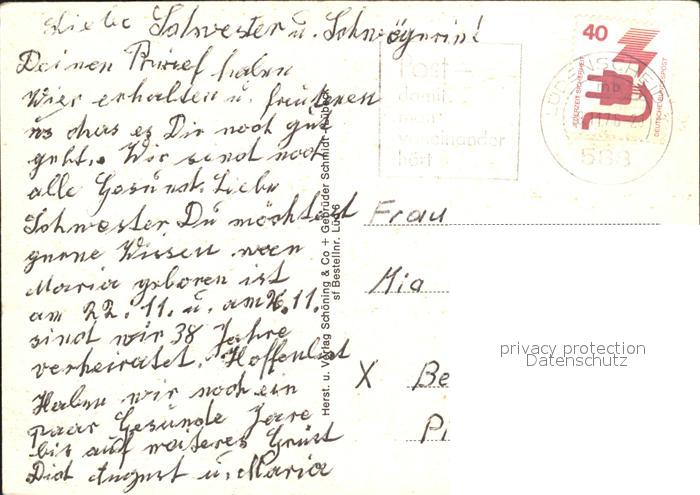 Liebe Schwester u. Schwögerin!
Deinen Brief haben
Wier erhalten u. freuteren
uns das es Dir noch gut
geht. Wir sind noch
alle Gesund. Liebe
Schwester, Du möchtest
gerne Wissen wen
Maria geboren ist
am 22. 11. u. am 26. 11.
sind wir 38 Jahre
verheiratet. Hoffenlist
Haben wir noch ein
paar Gesunde Jare
bis auf weiteres Grüst
Dich August u. Maria
Herst. u. Verlag Schöning & Co + Gebrüder Schmidt, Lübeck
sf Bestellnr. Lüd 6
Post -
damit
man
voneinander
hört
LÜDENSCHEID
mb
588
40
JEDERZEIT SICHERHEIT
DEUTSCHE BUNDESPOST
Frau
Mia
X Be
P
privacy protection
Datenschutz